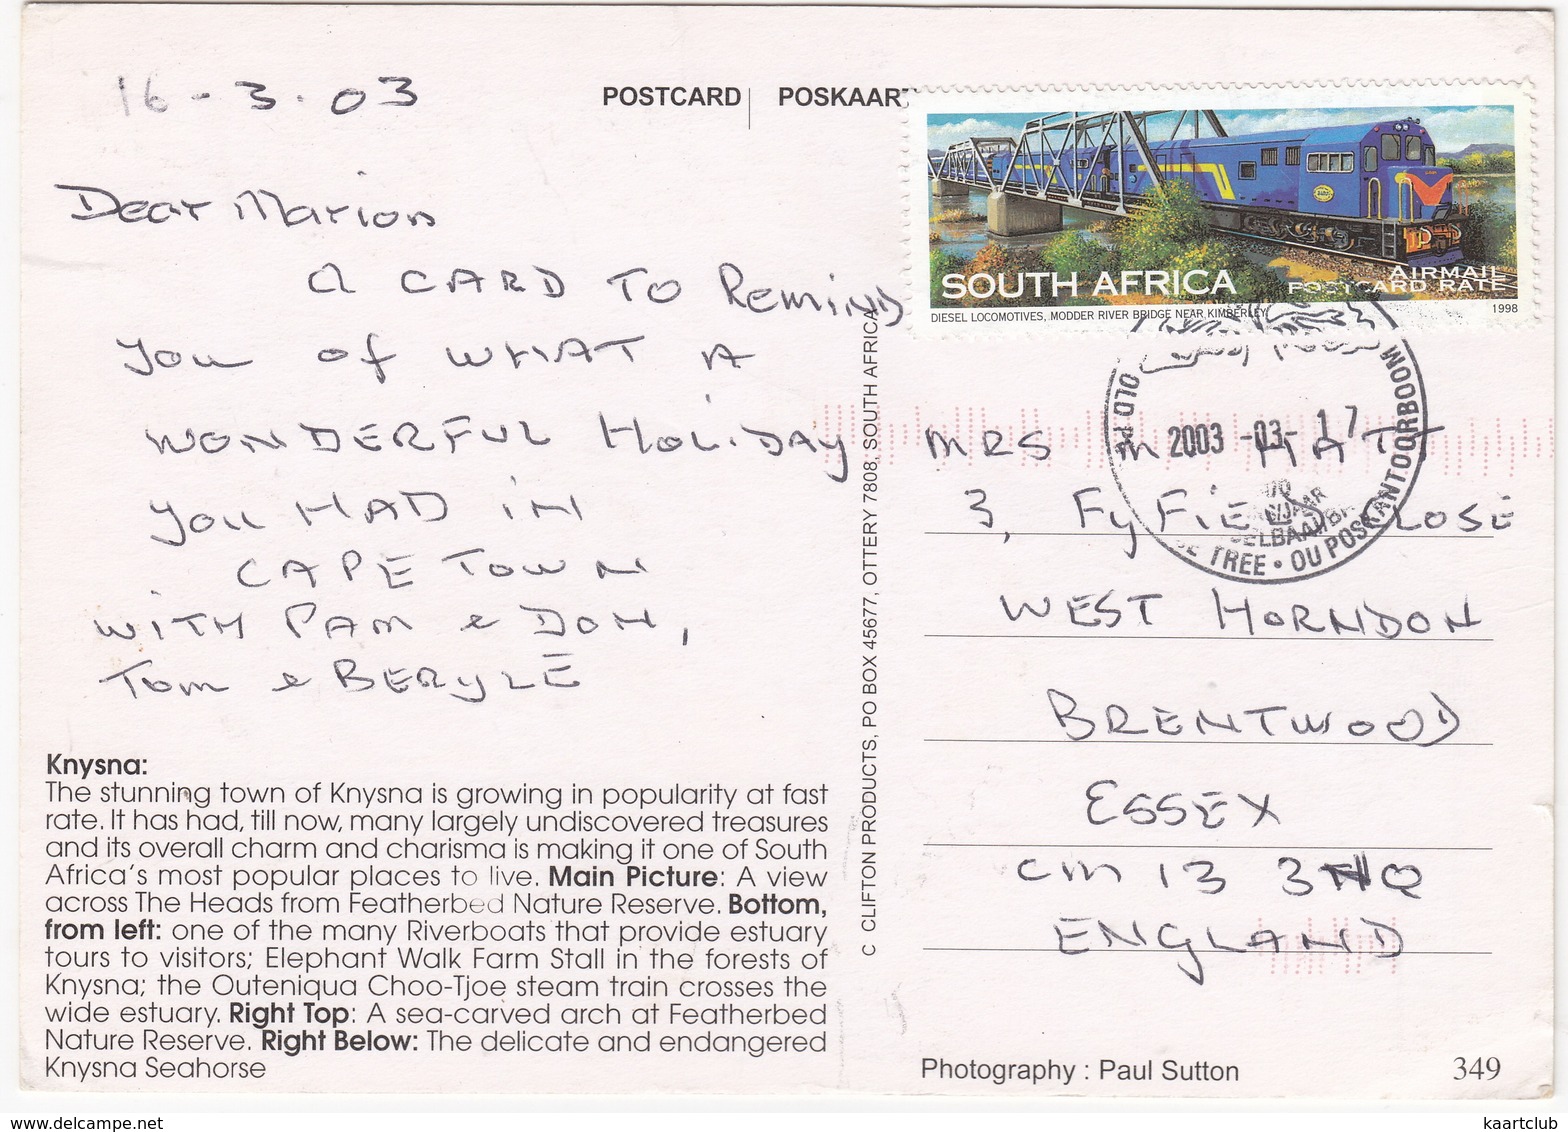 16-3.03
POSTCARD | POSKAART
Dear Marion
A CARD TO REMIND
you of WHAT A
WONDERFUL HOLIDAY
you HAD IN
CAPE TOWN
WITH PAM & DON,
TOM & BERYLE
Knysna:
The stunning town of Knysna is growing in popularity at fast
rate. It has had, till now, many largely undiscovered treasures
and its overall charm and charisma is making it one of South
Africa's most popular places to live. Main Picture: A view
across The Heads from Featherbed Nature Reserve. Bottom,
from left: one of the many Riverboats that provide estuary
tours to visitors; Elephant Walk Farm Stall in the forests of
Knysna; the Outeniqua Choo-Tjoe steam train crosses the
wide estuary. Right Top: A sea-carved arch at Featherbed
Nature Reserve. Right Below: The delicate and endangered
Knysna Seahorse
C CLIFTON PRODUCTS, PO BOX 45677, OTTERY 7808, SOUTH AFRICA
SOUTH AFRICA
AIRMAIL
POSTCARD RATE
DIESEL LOCOMOTIVES, MODDER RIVER BRIDGE NEAR KIMBERLEY
1998
OLD
2003-03-17
TREE • OU POSKANTOORBOOM
MRS M. HATT
3, FYFIELD CLOSE
WEST HORNDON
BRENTWOOD
ESSEX
CM 13 3HQ
ENGLAND
Photography : Paul Sutton
349
kaartclub